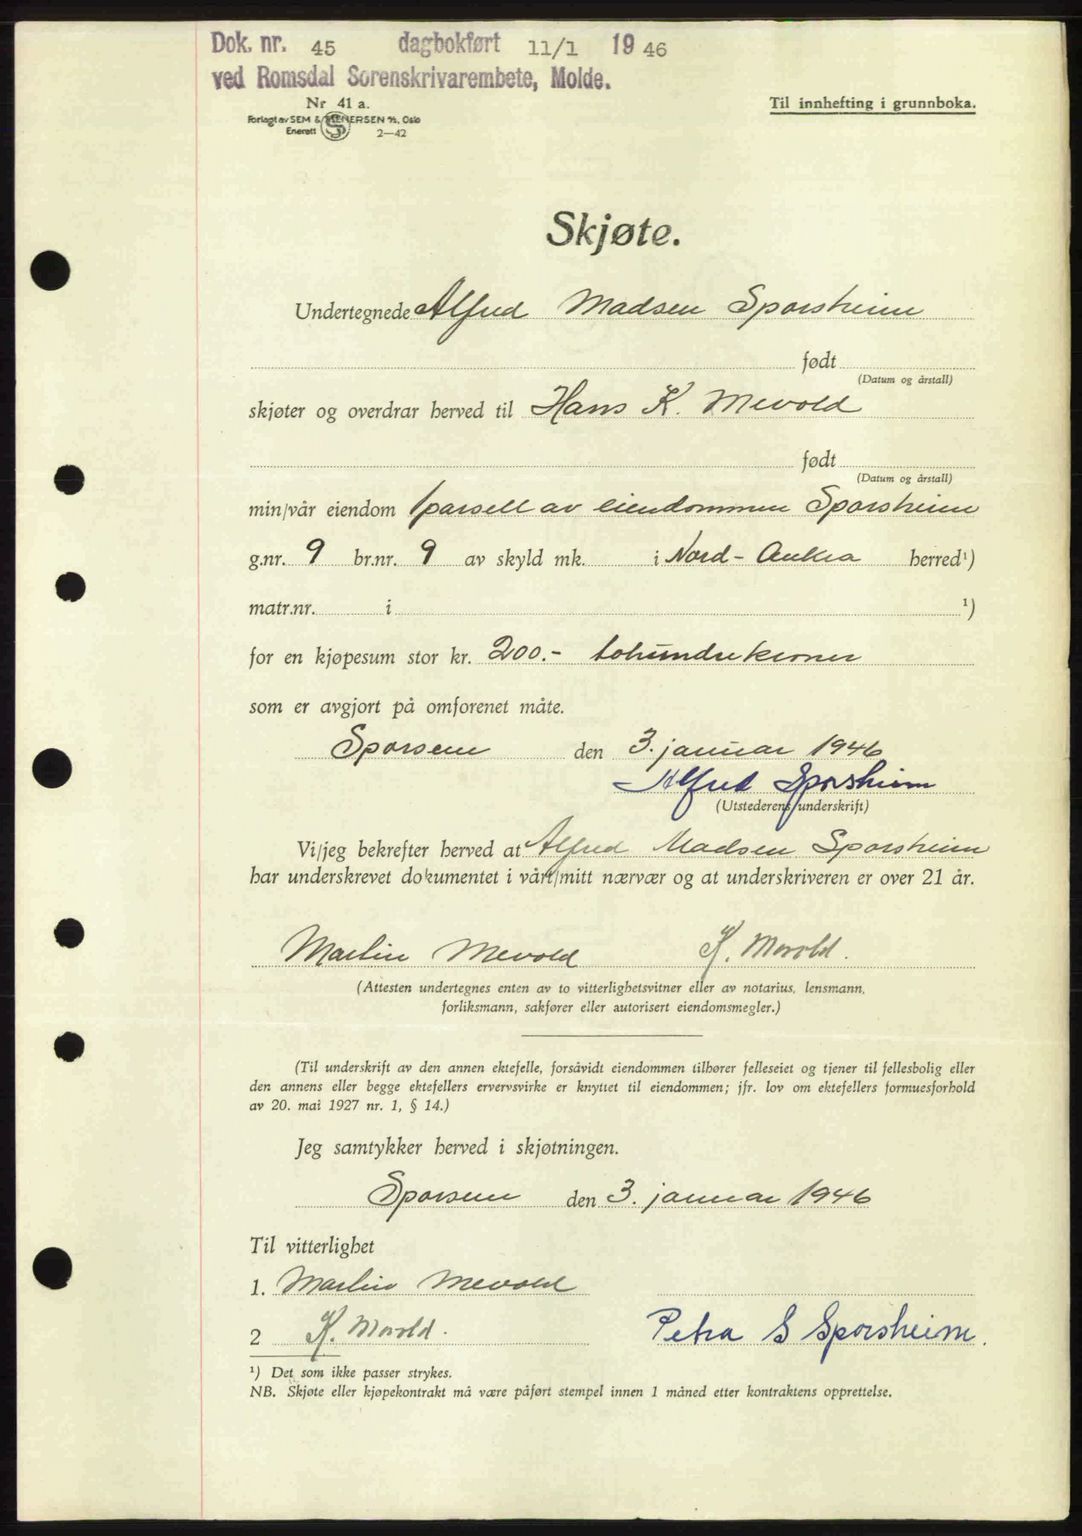 Dok. nr. 45 dagbokført 11/1 1946
ved Romsdal Sorenskrivarembete, Molde.
Nr 41 a.
Forlagt av SEM & STENERSEN A/S, Oslo
Enerett 2—42
Til innhefting i grunnboka.
Skjøte.
Undertegnede Alfred Madsen Sporsheim
født
(Datum og årstall)
skjøter og overdrar herved til Hans K. Mevold
født
(Datum og årstall)
min/vår eiendom 1 parsell av eiendommen Sporsheim
g.nr. 9 br.nr. 9 av skyld mk. i Nord-Aukra herred¹)
matr.nr. i ¹)
for en kjøpesum stor kr. 200.- tohundrekroner
som er avgjort på omforenet måte.
Sporsem den 3. januar 1946
Alfred Sporsheim
(Utstederens underskrift)
Vi/jeg bekrefter herved at Alfred Madsen Sporsheim
har underskrevet dokumentet i vårt/mitt nærvær og at underskriveren er over 21 år.
Martin Mevold K. Mevold.
(Attesten undertegnes enten av to vitterlighetsvitner eller av notarius, lensmann,
forliksmann, sakfører eller autorisert eiendomsmegler.)
(Til underskrift av den annen ektefelle, forsåvidt eiendommen tilhører felleseiet og tjener til fellesbolig eller
den annens eller begge ektefellers ervervsvirke er knyttet til eiendommen; jfr. lov om ektefellers formuesforhold
av 20. mai 1927 nr. 1, § 14.)
Jeg samtykker herved i skjøtningen.
Sporsem den 3. januar 1946
Til vitterlighet
1. Martin Mevold
2 K. Mevold. Petra S Sporsheim.
¹) Det som ikke passer strykes.
NB. Skjøte eller kjøpekontrakt må være påført stempel innen 1 måned etter kontraktens opprettelse.